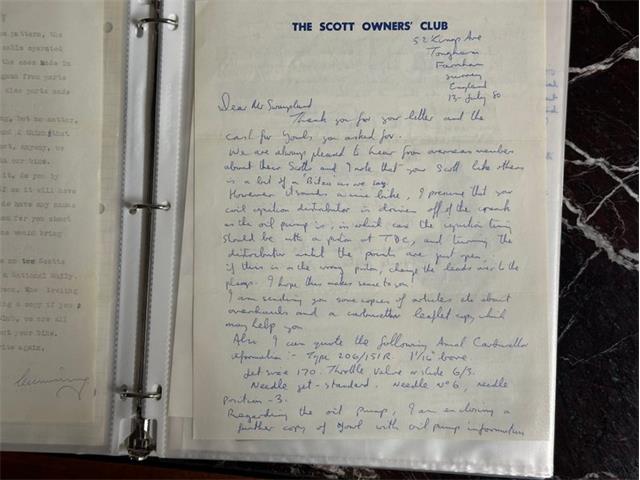 THE SCOTT OWNERS' CLUB
52 Kings Ave
Tongham
Farnham
Surrey
England
13 July 80
Dear Mr
Thank you for your letter and the
cash for Yowls you asked for.
We are always pleased to hear from overseas members
about their Scotts and I note that your Scott like others
is a bit of a Bitza as we say.
However it sounds a nice bike, I presume that your
coil ignition distributor is driven off of the crank
as the oil pump is, in which case the ignition timing
should be with a piston at TDC, and turning the
distributor until the points are just open.
if this is on the wrong piston, change the leads over to the
plugs. I hope this makes sense to you
I am sending you some copies of articles etc about
overhauls and a carburettor leaflet copy which
may help you
Also I can quote the following Amal Carburettor
information :- Type 206/151R. 1 1/16" bore.
Jet size 170. Throttle Valve or slide 6/3.
Needle jet - standard. Needle No 6, needle
position - 3.
Regarding the oil pump, I am enclosing a
further copy of Yowl with oil pump information
pattern, the
operated
the ones made in
from parts
also parts made
but no matter,
and I think that
anyway, we
bike.
it, do you by
if so it will have
have any names
for you about
would bring
no Scotts
a National Rally.
a copy if you
we are all
your bike.
again,